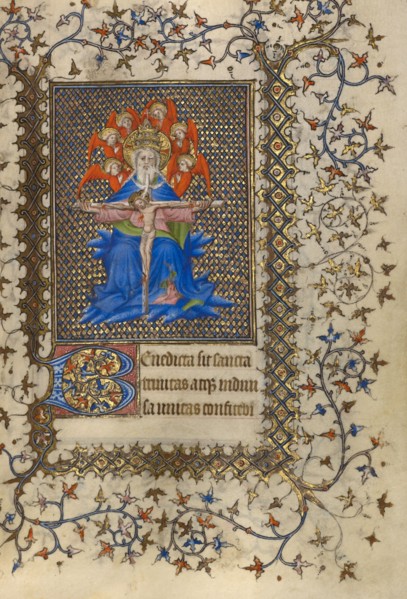 Benedicta sit sancta
trinitas atq; indiui
sa unitas confitebi